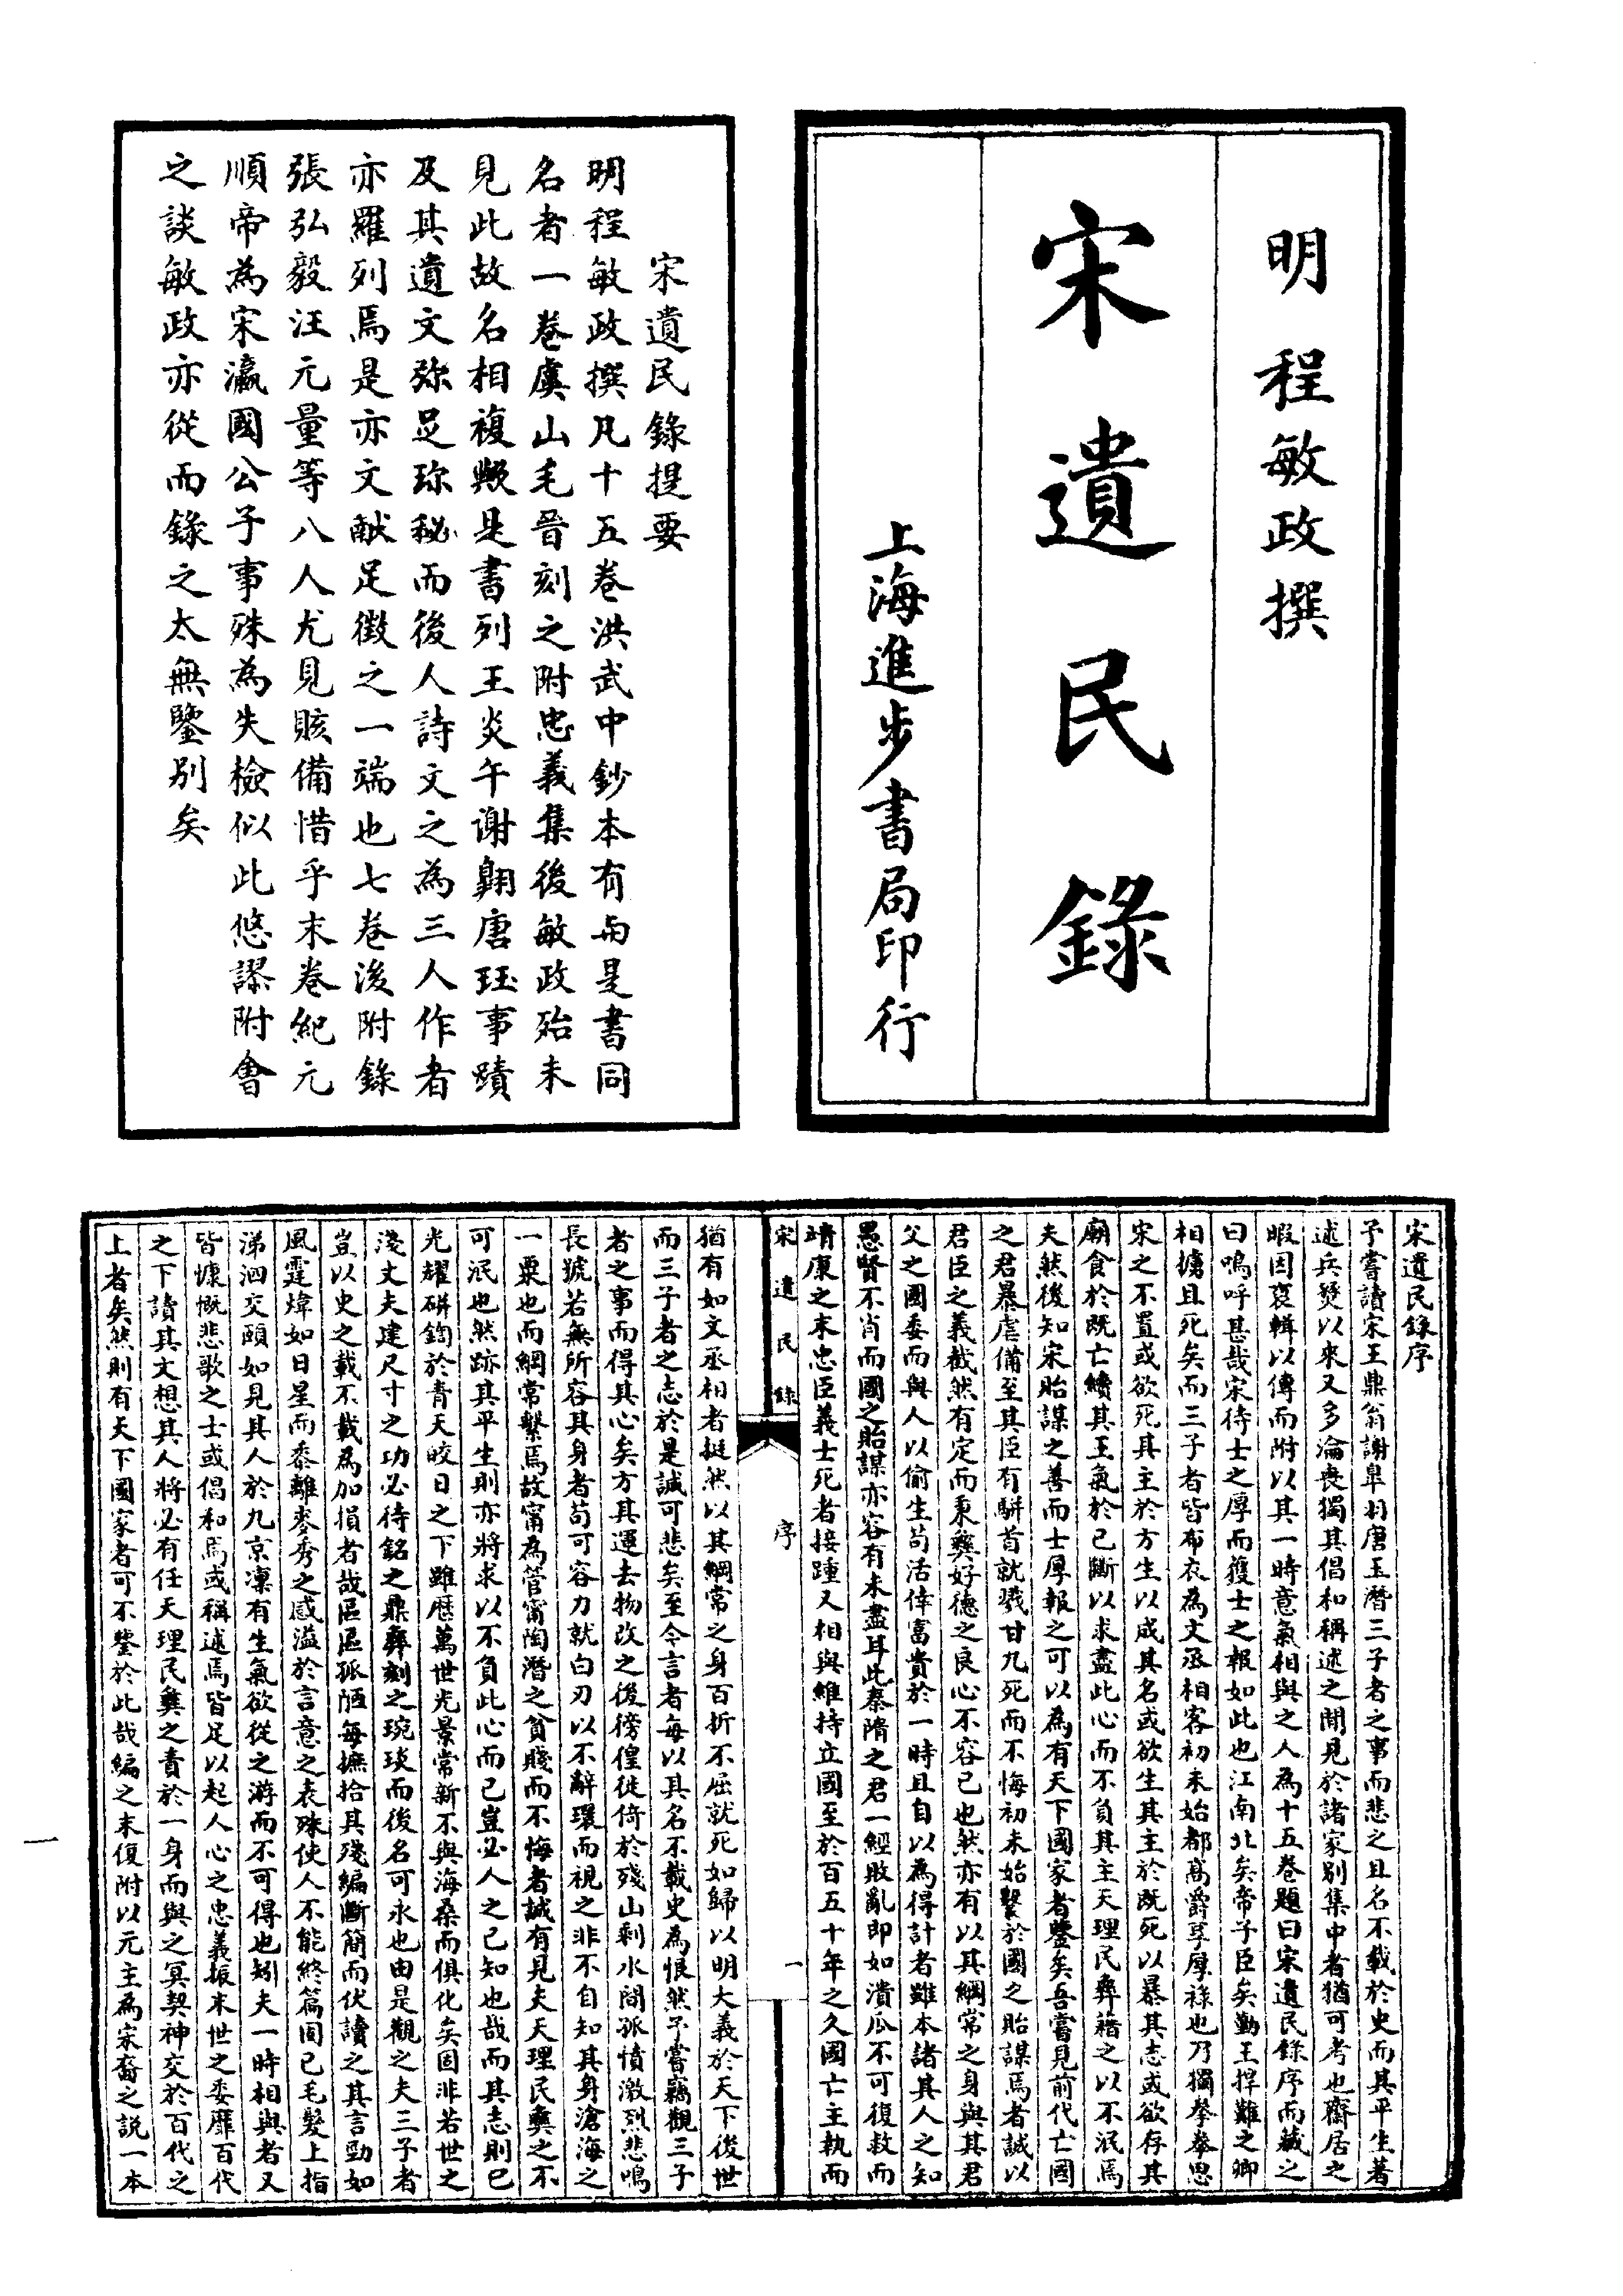 明 程敏政撰
宋遺民錄
上海進步書局印行
宋遺民錄提要
明程敏政撰凡十五卷洪武中鈔本有與是書同
名者一卷虞山毛晉刻之附忠義集後敏政殆未
見此故名相複歟是書列王炎午谢翱唐珏事蹟
及其遺文弥足珎秘而後人詩文之為三人作者
亦羅列焉是亦文献足徵之一端也七卷後附錄
張弘毅汪元量等八人尤見賅備惜乎末卷紀元
順帝為宋瀛國公子事殊為失檢似此悠謬附會
之談敏政亦從而錄之太無鑒別矣
宋遺民錄序
予嘗讀宋王鼎翁謝皐羽唐玉潛三子者之事而悲之且名不載於史而其平生著
述兵燹以來又多淪喪獨其倡和稱述之閒見於諸家別集中者猶可考也齋居之
暇因裒輯以傳而附以其一時意氣相與之人為十五卷題曰宋遺民錄序而藏之
曰嗚呼甚哉宋待士之厚而獲士之報如此也江南北矣帝子臣矣勤王捍難之卿
相擄且死矣而三子者皆布衣為文丞相客初未始都高爵享厚祿也乃獨拳拳思
宋之不置或欲死其主於方生以成其名或欲生其主於既死以暴其志或欲存其
廟食於既亡續其王氣於已斷以求盡此心而不負其主天理民彝藉之以不泯焉
夫然後知宋貽謀之善而士厚報之可以為有天下國家者鑒矣吾嘗見前代亡國
之君暴虐備至其臣有駢首就戮甘九死而不悔初未始繫於國之貽謀焉者誠以
君臣之義截然有定而秉彝好德之良心不容已也然亦有以其綱常之身與其君
父之國委而與人以偷生苟活倖富貴於一時且自以為得計者雖本諸其人之知
愚賢不肖而國之貽謀亦容有未盡耳此秦隋之君一經敗亂即如潰瓜不可復救而
靖康之末忠臣義士死者接踵又相與維持立國至於百五十年之久國亡主執而
宋遺民錄
序
一
猶有如文丞相者挺然以其綱常之身百折不屈就死如歸以明大義於天下後世
而三子者之志於是誠可悲矣至今言者每以其名不載史為恨然予嘗竊觀三子
者之事而得其心矣方其運去物改之後徬徨徙倚於殘山剩水閒孤憤激烈悲鳴
長號若無所容其身者苟可容力就白刃以不辭環而視之非不自知其身滄海之
一粟也而綱常繫焉故甯為管甯陶潛之貧賤而不悔者誠有見夫天理民彝之不
可泯也然跡其平生則亦將求以不負此心而已豈必人之已知也哉而其志則已
光耀磅鍧於青天皎日之下雖歷萬世光景常新不與海桑而俱化矣固非若世之
淺丈夫建尺寸之功必待銘之鼎彝刻之琬琰而後名可永也由是觀之夫三子者
豈以史之載不載為加損者哉區區孤陋每摭拾其殘編斷簡而伏讀之其言勁如
風霆煒如日星而黍離麥秀之感溢於言意之表殊使人不能終篇固已毛髮上指
涕泗交頤如見其人於九京凜有生氣欲從之游而不可得也矧夫一時相與者又
皆慷慨悲歌之士或倡和焉或稱述焉皆足以起人心之忠義振末世之委靡百代
之下讀其文想其人將必有任天理民彝之責於一身而與之冥契神交於百代之
上者矣然則有天下國家者可不鑒於此哉編之末復附以元主為宋裔之說一本
一